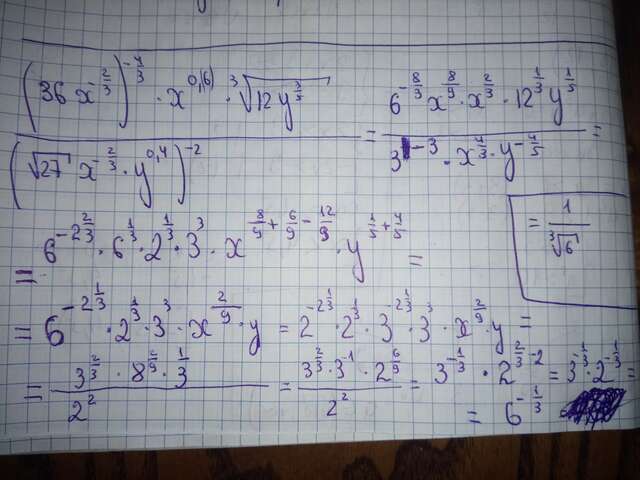 (36x^{-2/3})^{-4/3} · x^{0,(6)} · ∛(12y^{3/5}) / (√27 x^{-2/3} · y^{0,4})^{-2} = 6^{-8/3} x^{8/9} · x^{2/3} · 12^{1/3} y^{1/5} / 3^{-3} · x^{4/3} · y^{-4/5} =
= 6^{-2 2/3} · 6^{1/3} · 2^{1/3} · 3^{3} · x^{8/9 + 6/9 - 12/9} · y^{1/5 + 4/5} =
= 6^{-2 1/3} · 2^{1/3} · 3^{3} · x^{2/9} · y = 2^{-2 1/3} · 2^{1/3} · 3^{-2 1/3} · 3^{3} · x^{2/9} · y =
= 3^{2/3} · 8^{2/9} · 3^{-1} / 2^{2} = 3^{2/3} · 3^{-1} · 2^{6/9} / 2^{2} = 3^{-1/3} · 2^{2/3 - 2} = 3^{-1/3} · 2^{-1/3} =
= 6^{-1/3}
= 1/∛6